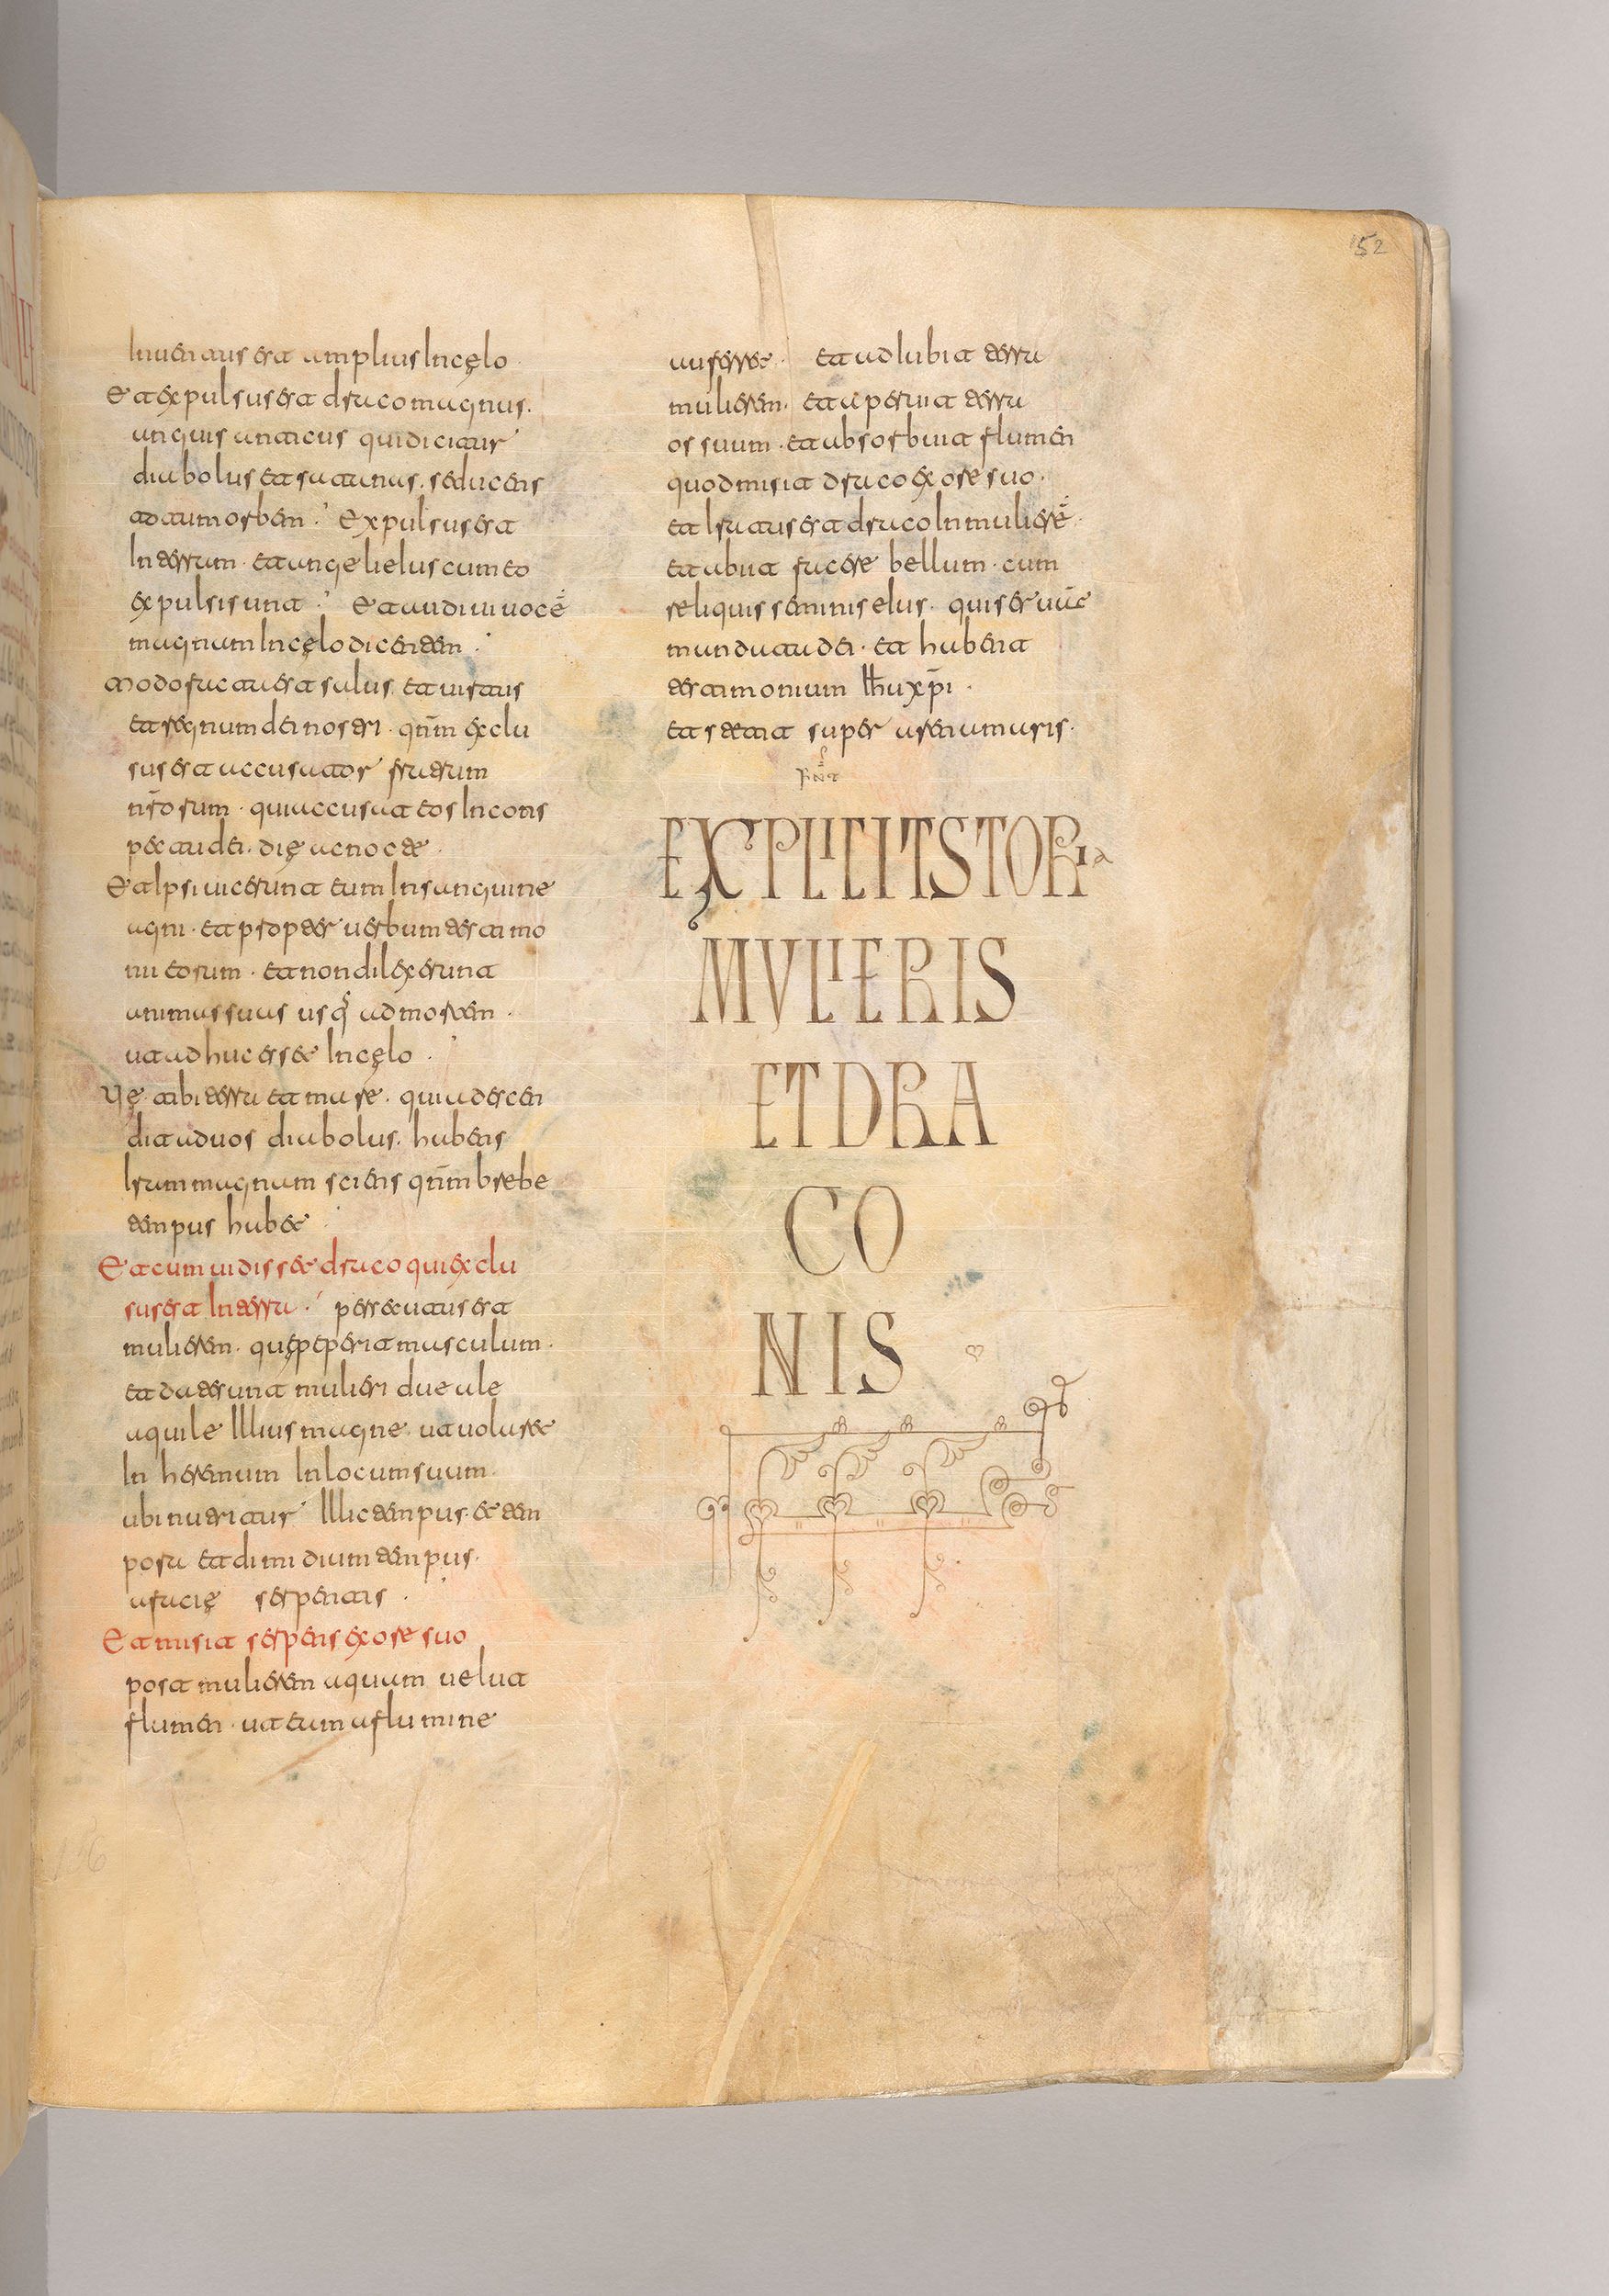 152
Inuentus est amplius In cęlo
Et expulsus est draco magnus.
anguis anticus qui dicitur
diabolus et satanas. seducens
ad a tum orbem. Expulsus est
In terram. et angeli eIus cum eo
expulsi sunt. Et audiui uocē
magnam In cęlo dicentem.
Modo facta est salus et uirtus
et regnum dei nostri. qnm exclu
sus est accusator fratrum
nrorum. qui accusat eos In cons
pectu dei. dię ac nocte.
Et Ipsi uicerunt eum In sanguine
agni. et propter uerbum testimo
nii eorum. et non dilexerunt
animas suas usq ad mortem.
ut adhuc esset In cęlo.
Uę tibi terra et mare. quia descen
dit ad uos diabolus. habens
Iram magnam sciens qnm brebe
tempus habet
Et cum uidisset draco qui exclu
sus est In terra. persecutus est
mulierem. quę peperit masculum.
et date sunt mulieri due ale
aquile Illius magne. ut uolaret
In heremum In locum suum.
ubi nutritur Illic tempus. et tem
pora et dimidium tempus.
a facię serpentis.
Et misit serpens ex ore suo
post mulierem aquam uelut
flumen. ut eum a flumine
auferret. et adIubit terra
mulierem. et aperuit terra
os suum. et absorbuit flumen
quod misit draco ex ore suo.
et Iratus est draco In mulierē.
et abiit facere bellum. cum
reliquis seminis eIus. qui seruāt
mandata dei. et habent
testimonium Ihu xpi.
et stetit super arenam maris.
EXPLICIT STORIa
MULIERIS
ET DRA
CO
NIS